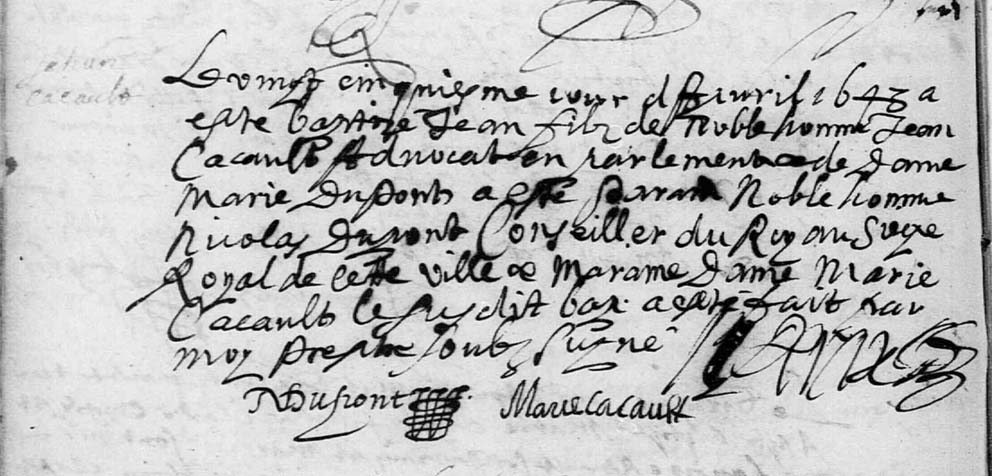 Jehan
Cacault
Le vingt cinquiesme iour d'Apvril 1643 a
este baptize Jean filz de Noble homme Jean
Cacault Advocat en parlement et de Dame
Marie Dupont a este parain Noble homme
Nicolas Dupont Conseiller du Roy au Siege
Royal de cette ville et Maraine Dame Marie
Cacault le susdit bap. a esté fait par
moy prestre soubz signé
NDupont Marie Cacault